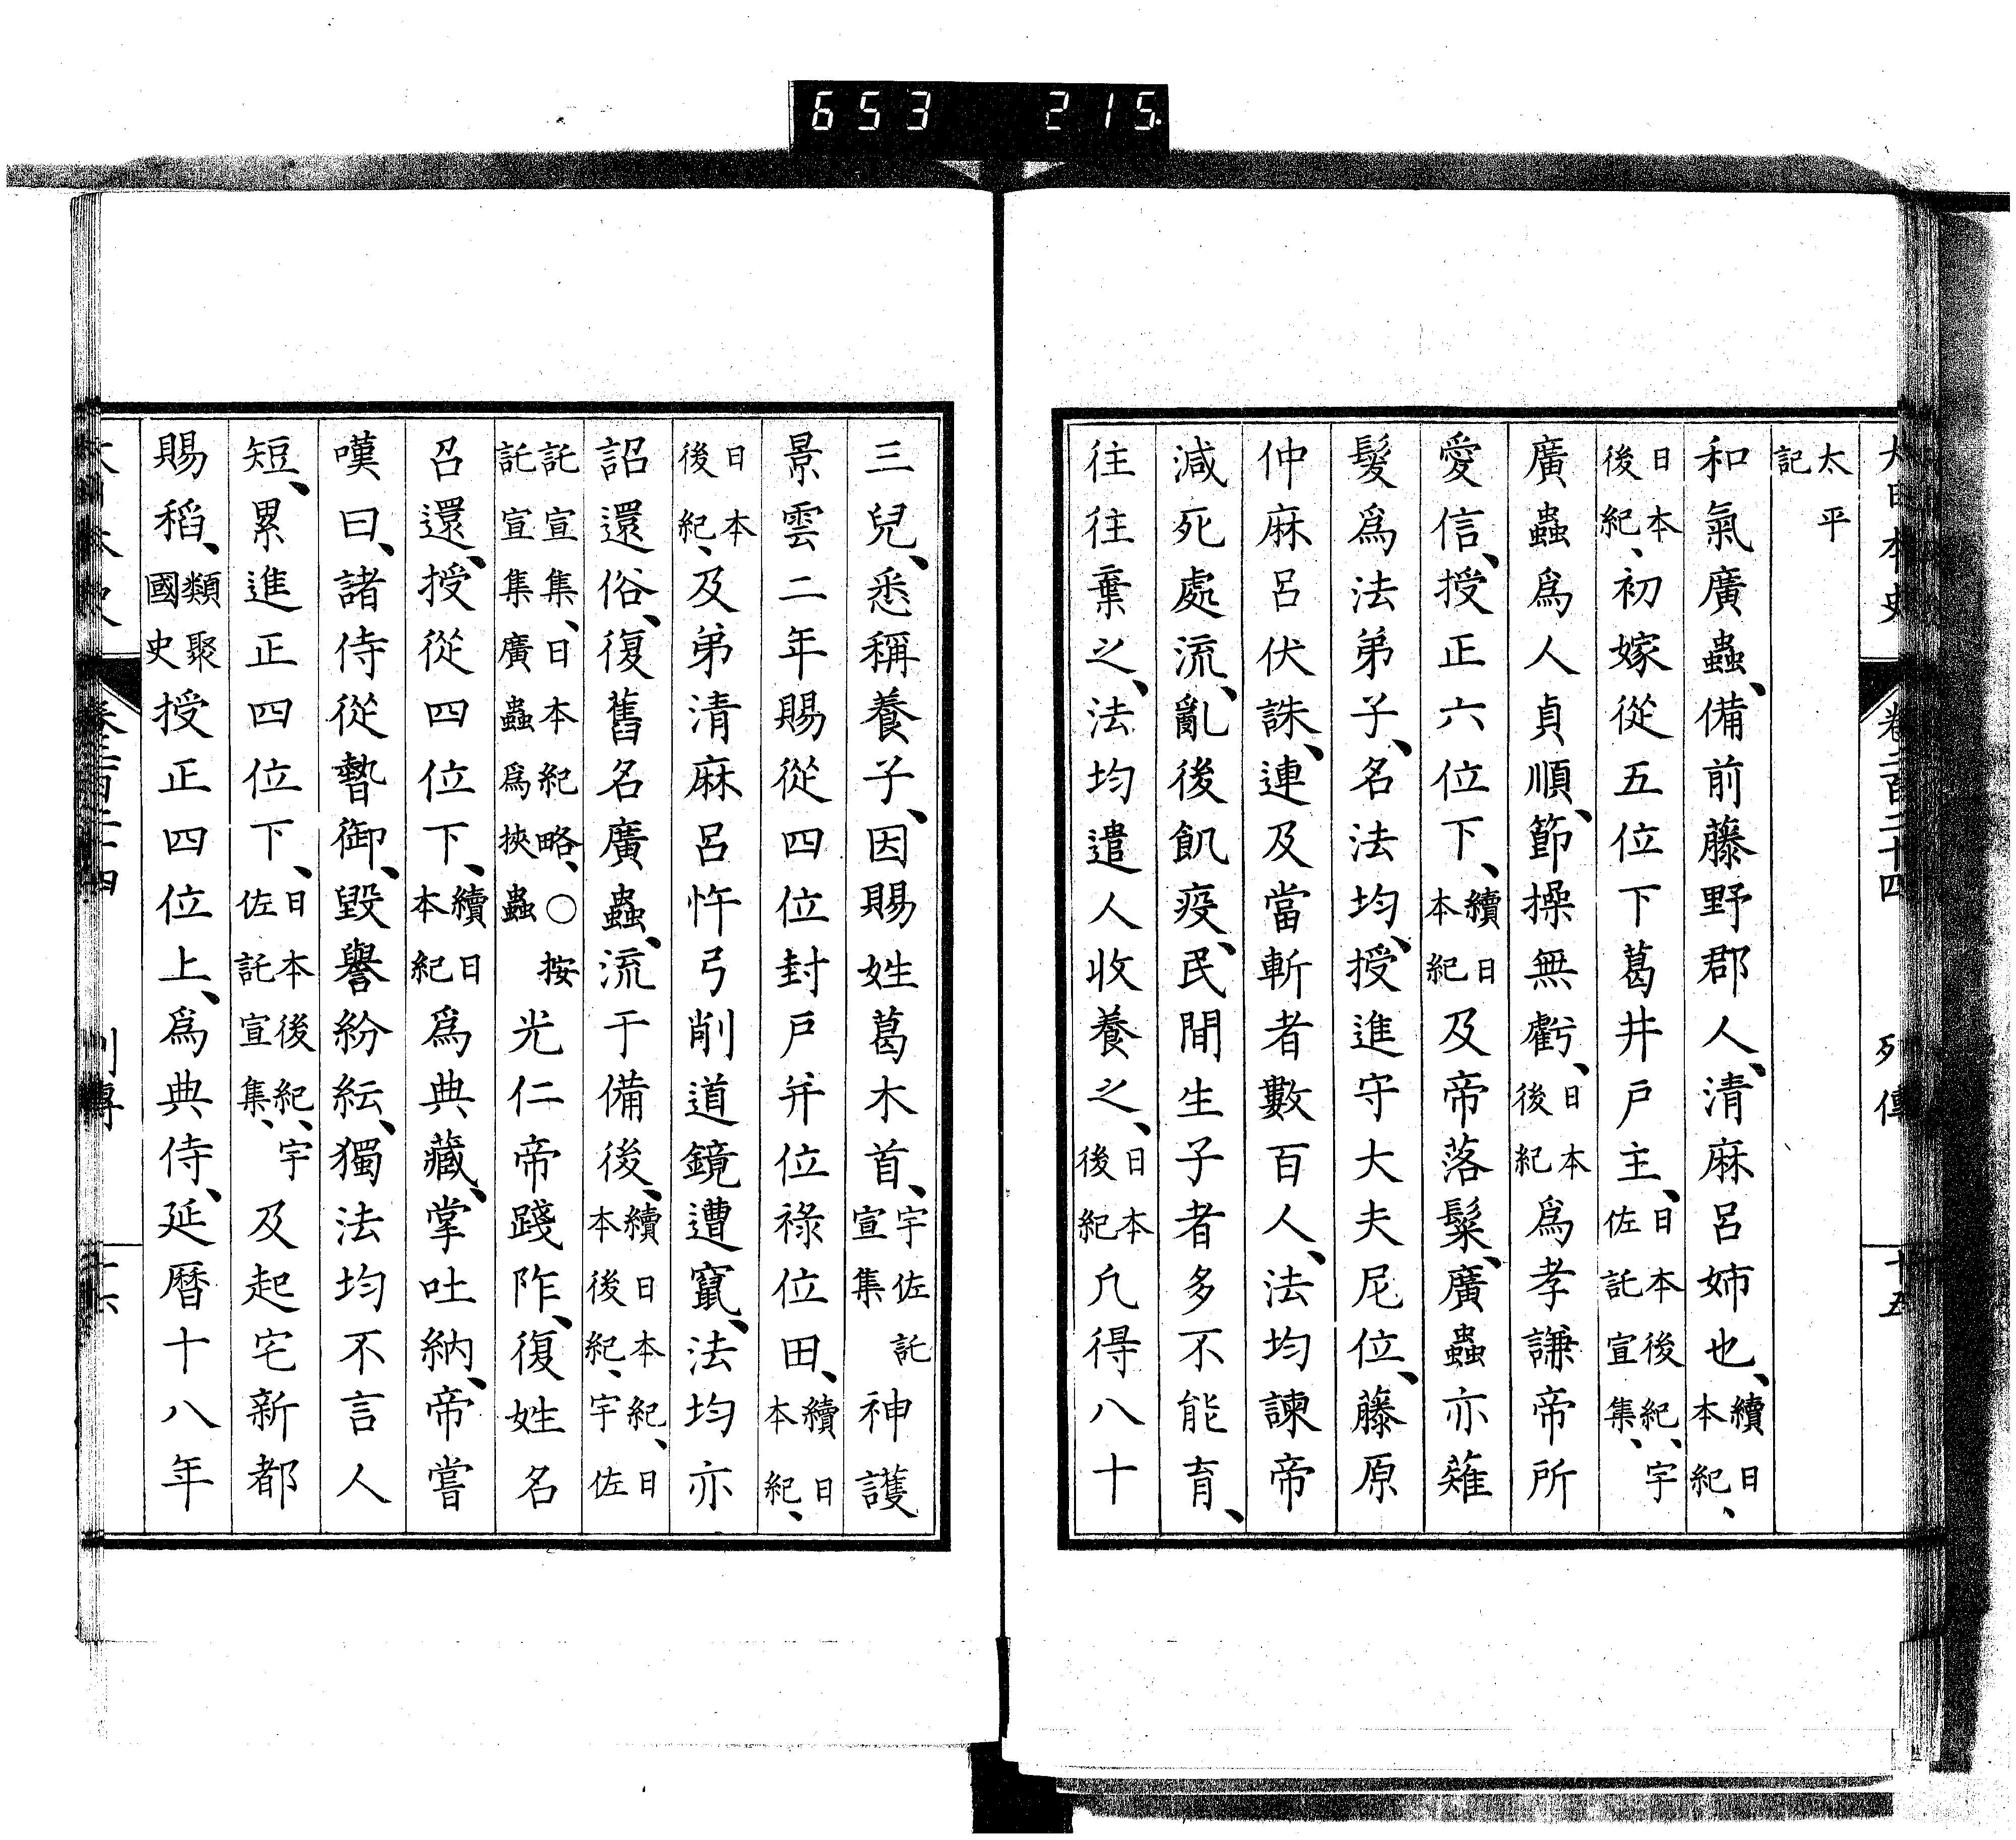 653 215
大日本史 卷二百二十四 列傳 十五
太平記
和氣廣蟲、備前藤野郡人、清麻呂姉也、續日本紀、
日本後紀、初嫁從五位下葛井戸主、日本後紀、宇佐託宣集、
廣蟲爲人貞順、節操無虧、日本後紀爲孝謙帝所
愛信、授正六位下、續日本紀及帝落鬟、廣蟲亦薙
髮爲法弟子、名法均、授進守大夫尼位、藤原
仲麻呂伏誅、連及當斬者數百人、法均諫帝
減死處流、亂後飢疫、民間生子者多不能育、
往往棄之、法均遣人收養之、日本後紀凡得八十
三兒、悉稱養子、因賜姓葛木首、宇佐託宣集神護
景雲二年賜從四位封戸幷位祿位田、續日本紀、
日本後紀、及弟清麻呂忤弓削道鏡遭竄、法均亦
詔還俗、復舊名廣蟲、流于備後、續日本後紀、日本紀、宇佐
託宣集、日本紀略、〇按託宣集廣蟲爲挾蟲光仁帝踐阼、復姓名
召還、授從四位下、續日本紀爲典藏、掌吐納、帝嘗
嘆曰、諸侍從贄御、毀譽紛紜、獨法均不言人
短、累進正四位下、日本後紀、宇佐託宣集、及起宅新都
賜稻、類聚國史授正四位上、爲典侍、延曆十八年
列傳